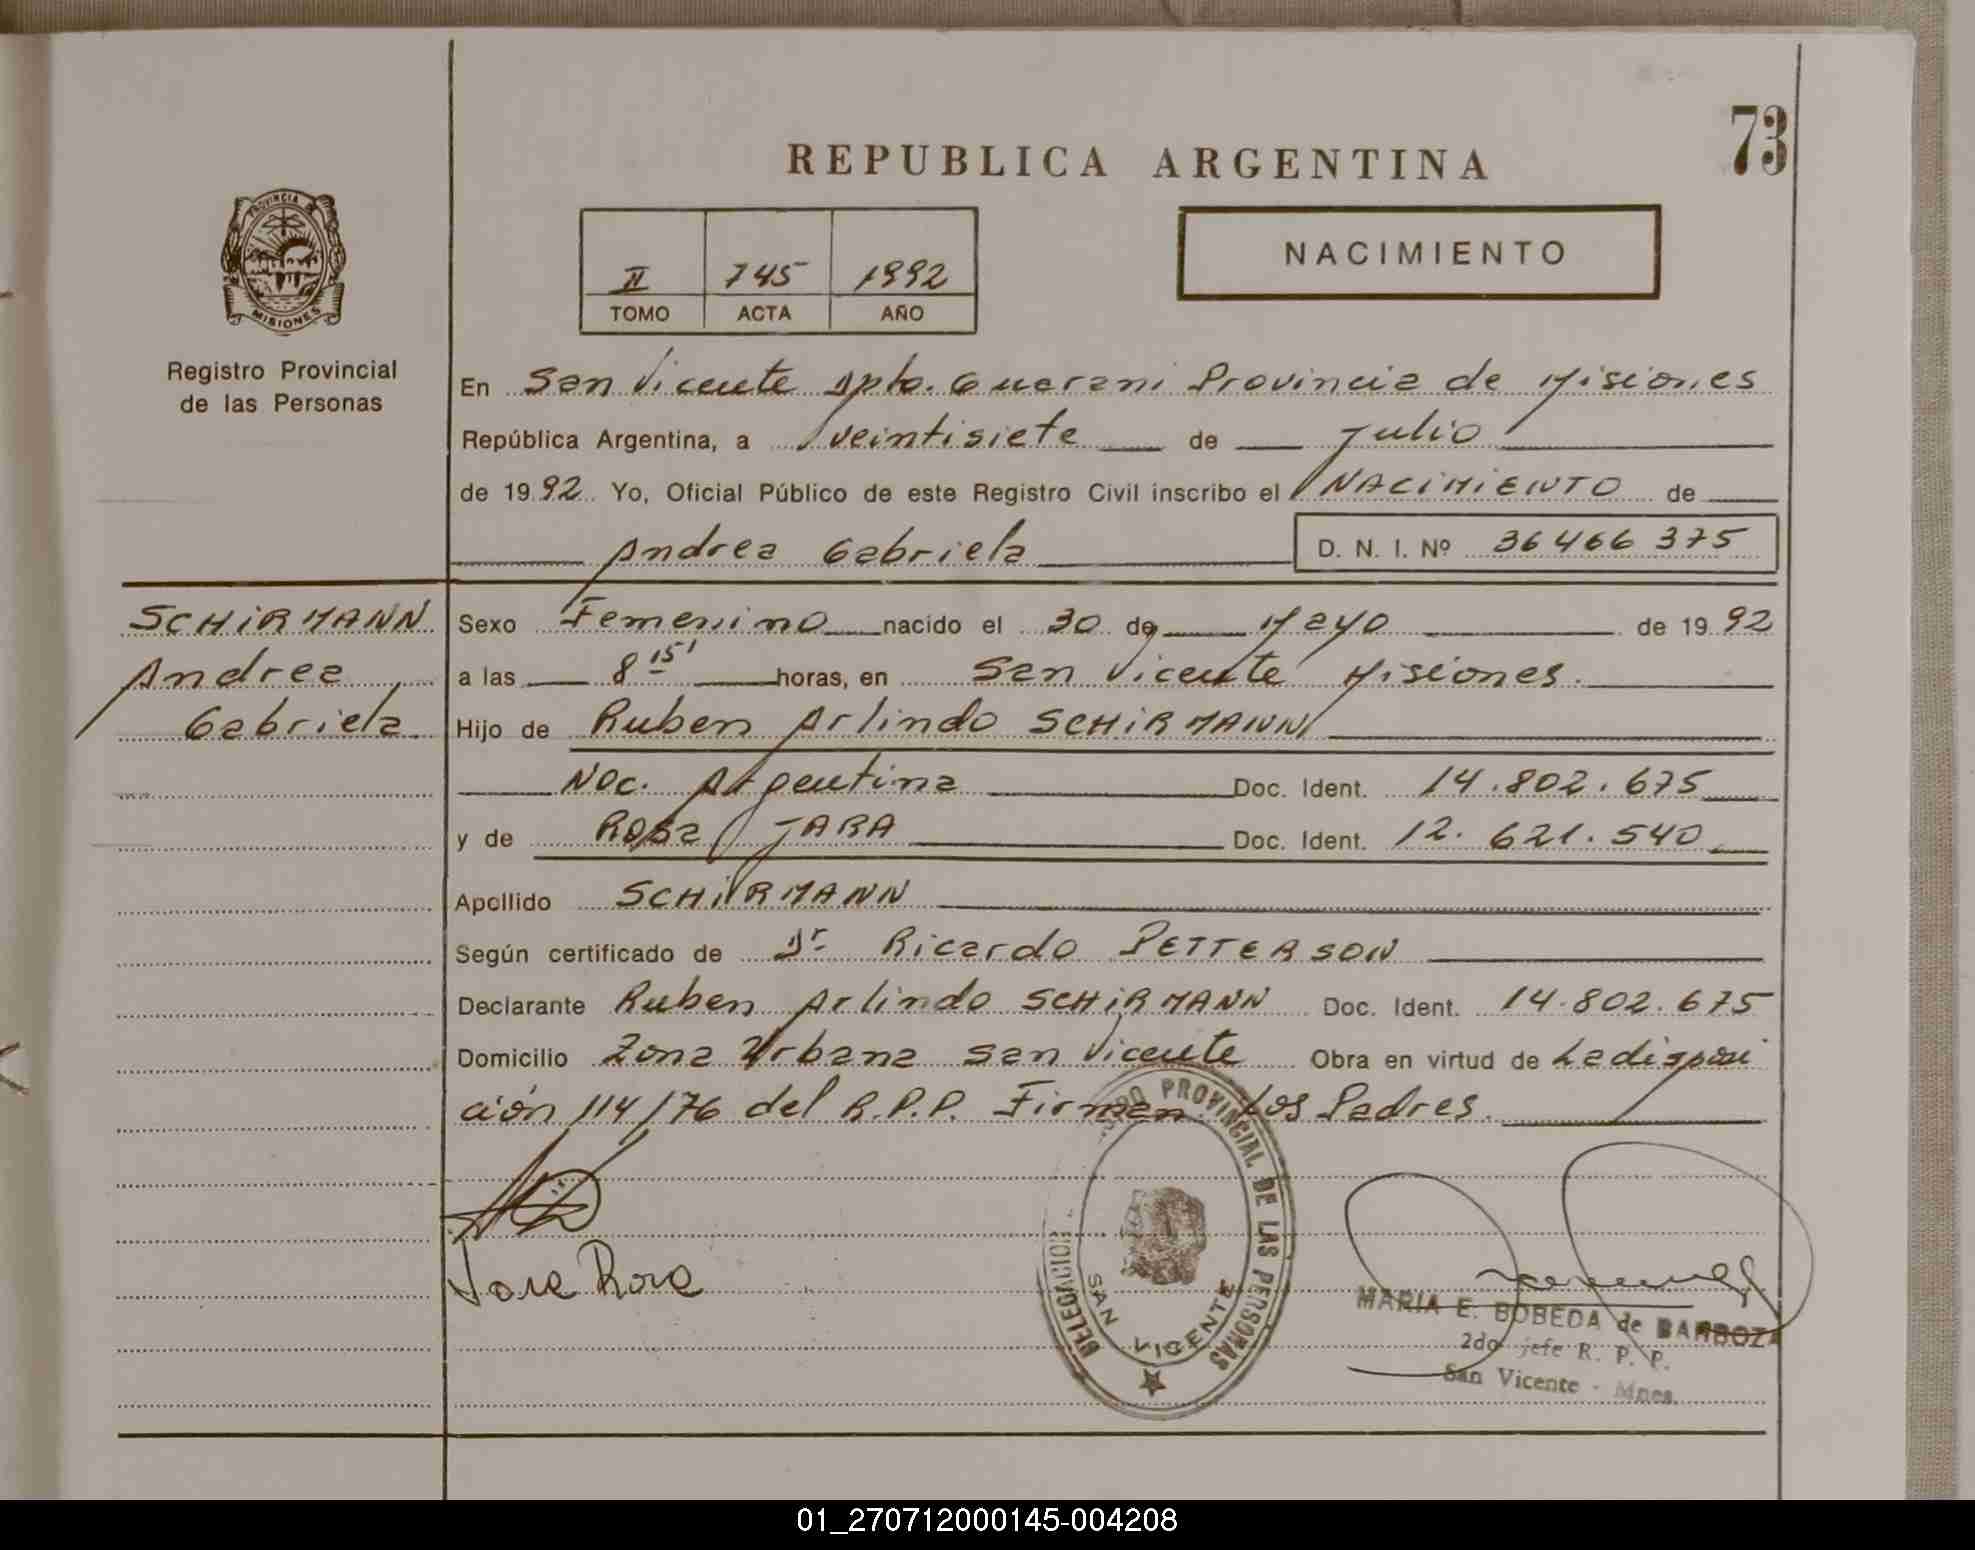 73
REPUBLICA ARGENTINA
PROVINCIA DE
MISIONES
Registro Provincial
de las Personas
II 745 1992
TOMO ACTA AÑO
NACIMIENTO
En San Vicente Dpto. Guarani Provincia de Misiones
República Argentina, a veintisiete de Julio
de 1992 Yo, Oficial Público de este Registro Civil inscribo el NACIMIENTO de
Andrea Gabriela D. N. I. Nº 36466375
SCHIRMANN
Andrea
Gabriela
Sexo Femenino nacido el 30 de Mayo de 1992
a las 8 15' horas, en San Vicente Misiones.
Hijo de Ruben Arlindo SCHIRMANN
Nac. Argentina Doc. Ident. 14.802.675
y de Rosa JARA Doc. Ident. 12.621.540
Apellido SCHIRMANN
Según certificado de Dr Ricardo PETTERSON
Declarante Ruben Arlindo SCHIRMANN Doc. Ident. 14.802.675
Domicilio Zona Urbana San Vicente Obra en virtud de La disposi
ción 114/76 del R.P.P. Firman Los Padres.
Jara Rosa
DELEGACION REGISTRO PROVINCIAL DE LAS PERSONAS
SAN VICENTE
MARIA E. BOBEDA de BARBOZA
2do jefe R. P. P.
San Vicente - Mnes.
01_270712000145-004208